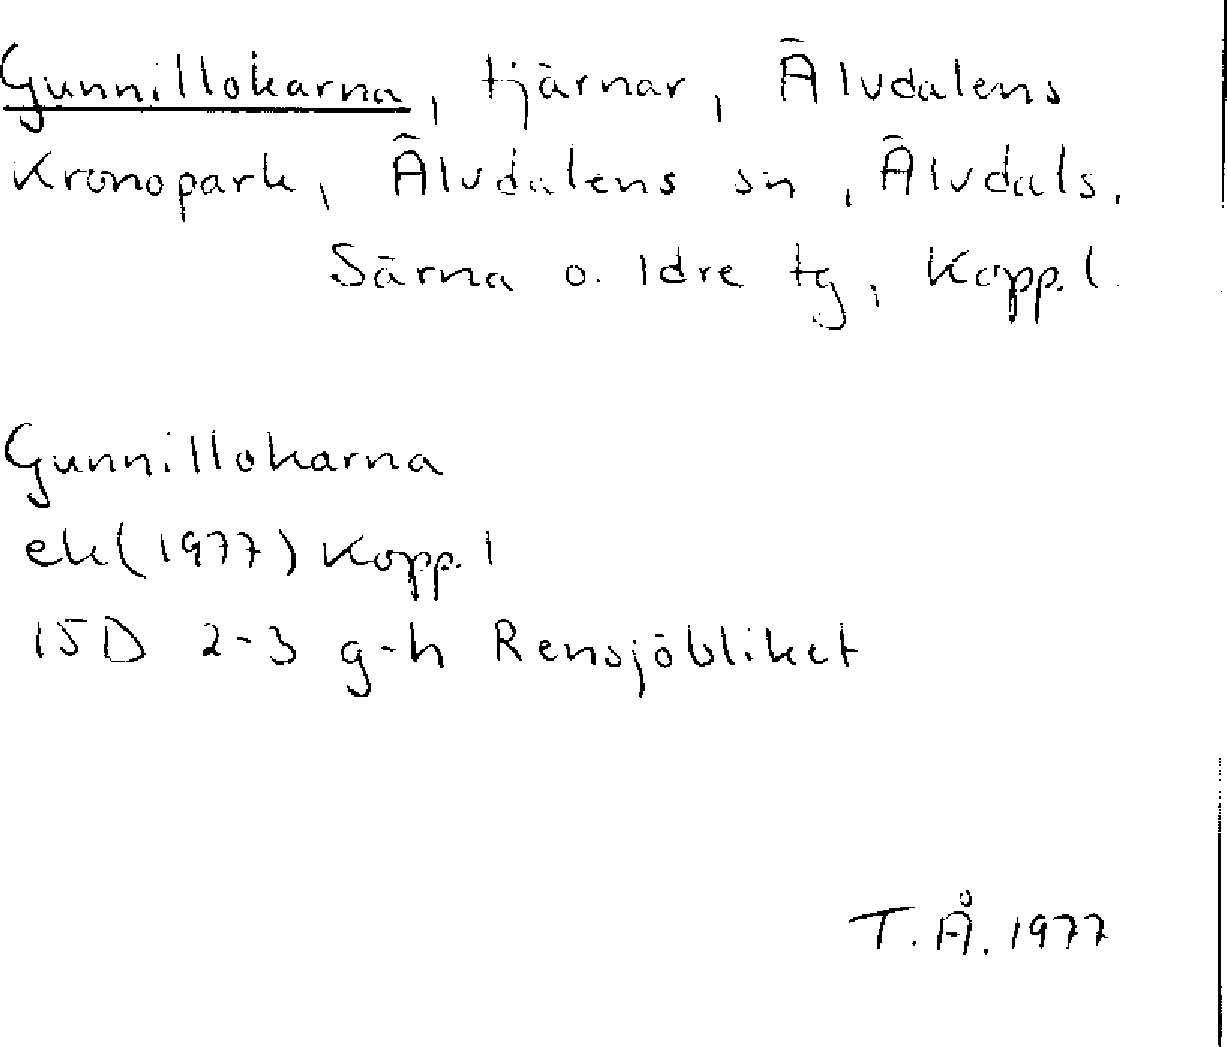 Gunnillokarna, tjärnar, Älvdalens
Kronopark, Älvdalens sn, Älvdals,
Särna o. Idre tg, Kopp. l.
Gunnillokarna
ek (1977) Kopp. l
15D 2-3 g-h Rensjöbliket
T.Å. 1977